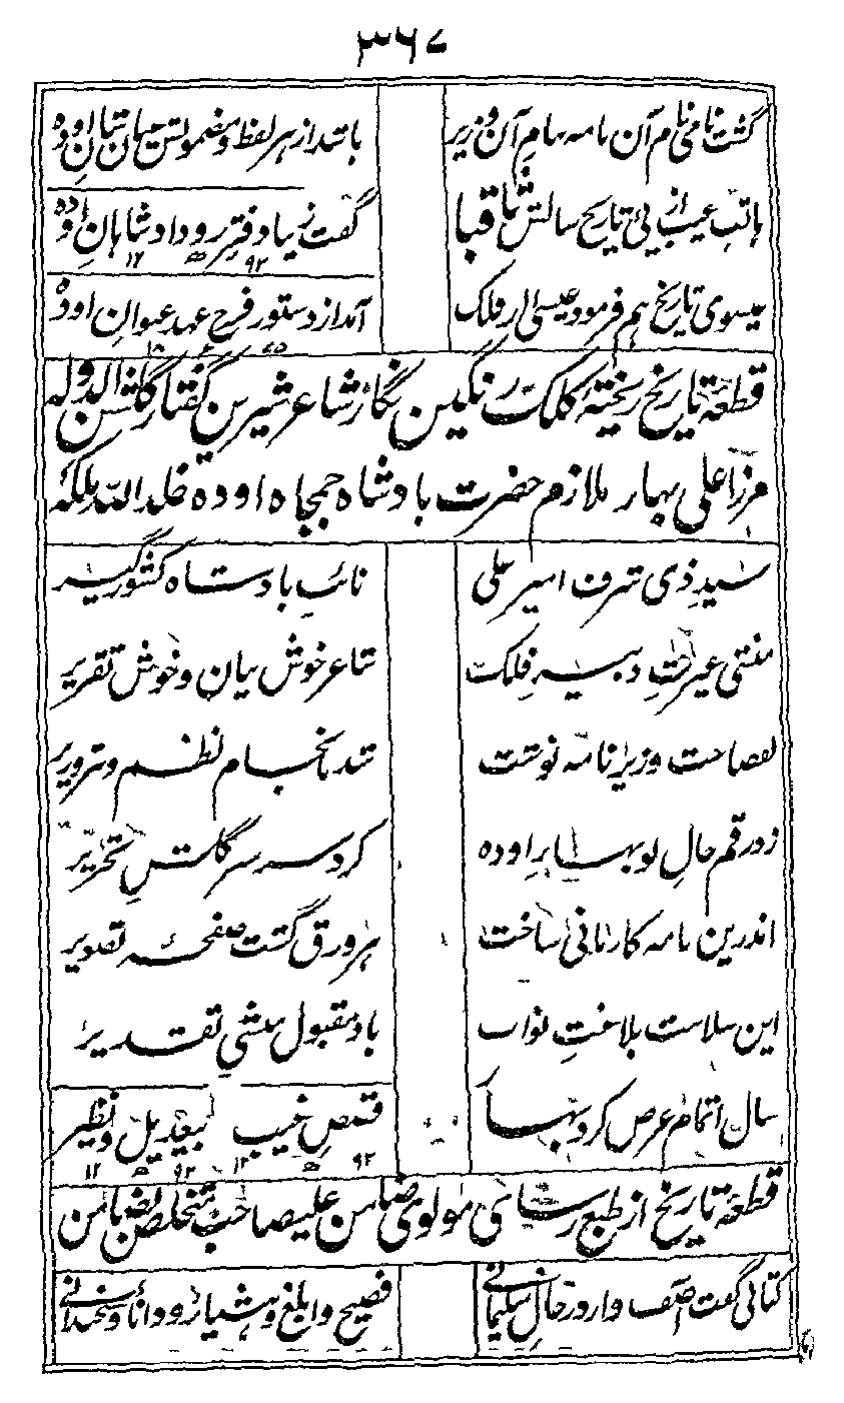 ۳۶۷
گشت نامی نام آن نامه بنام آن وزیر باشد از هر لفظ و مضمونش عیان شان اوده
هاتف غیب از پئ تاریخ سالش گفت زیبا دفتر روداد شاهان اوده
۹۲ ھ ۱۲
عیسوی تاریخ هم فرمود عیسی از فلک آمد از دستور فرح عهد عنوان اوده
قطعۂ تاریخ ریختۂ کلک رنگین نگار شاعر شیرین گفتار گلشن الدوله
مرزا علی بهار ملازم حضرت بادشاه جمجاه اوده خلد الله ملکه
سید ذی شرف امیر علی نائب بادشاه کشور گیر
منشی غیرت دبیر فلک شاعر خوش بیان و خوش تقریر
بفصاحت وزیر نامه نوشت شد بانجام نظم
زد رقم حال نوبهار اوده کرد سرسبز گلشن تحریر
اندرین نامه کار مانی ساخت هر ورق گشت صفحۂ تصویر
این سلاست بلاغت نواب باد مقبول منشی تقدیر
سال اتمام عرض کرد بهار قصص غیب بیعدیل و نظیر
۹۲ ھ ۱۲ ۹۲ ھ ۱۲
قطعۂ تاریخ از طبع رسای مولوی ضامن علیصاحب متخلص بضامن
کتابی گفت آصف وارد در حال سلیمانی فصیح و ابلغ و هشیار و دانا و سخندانی